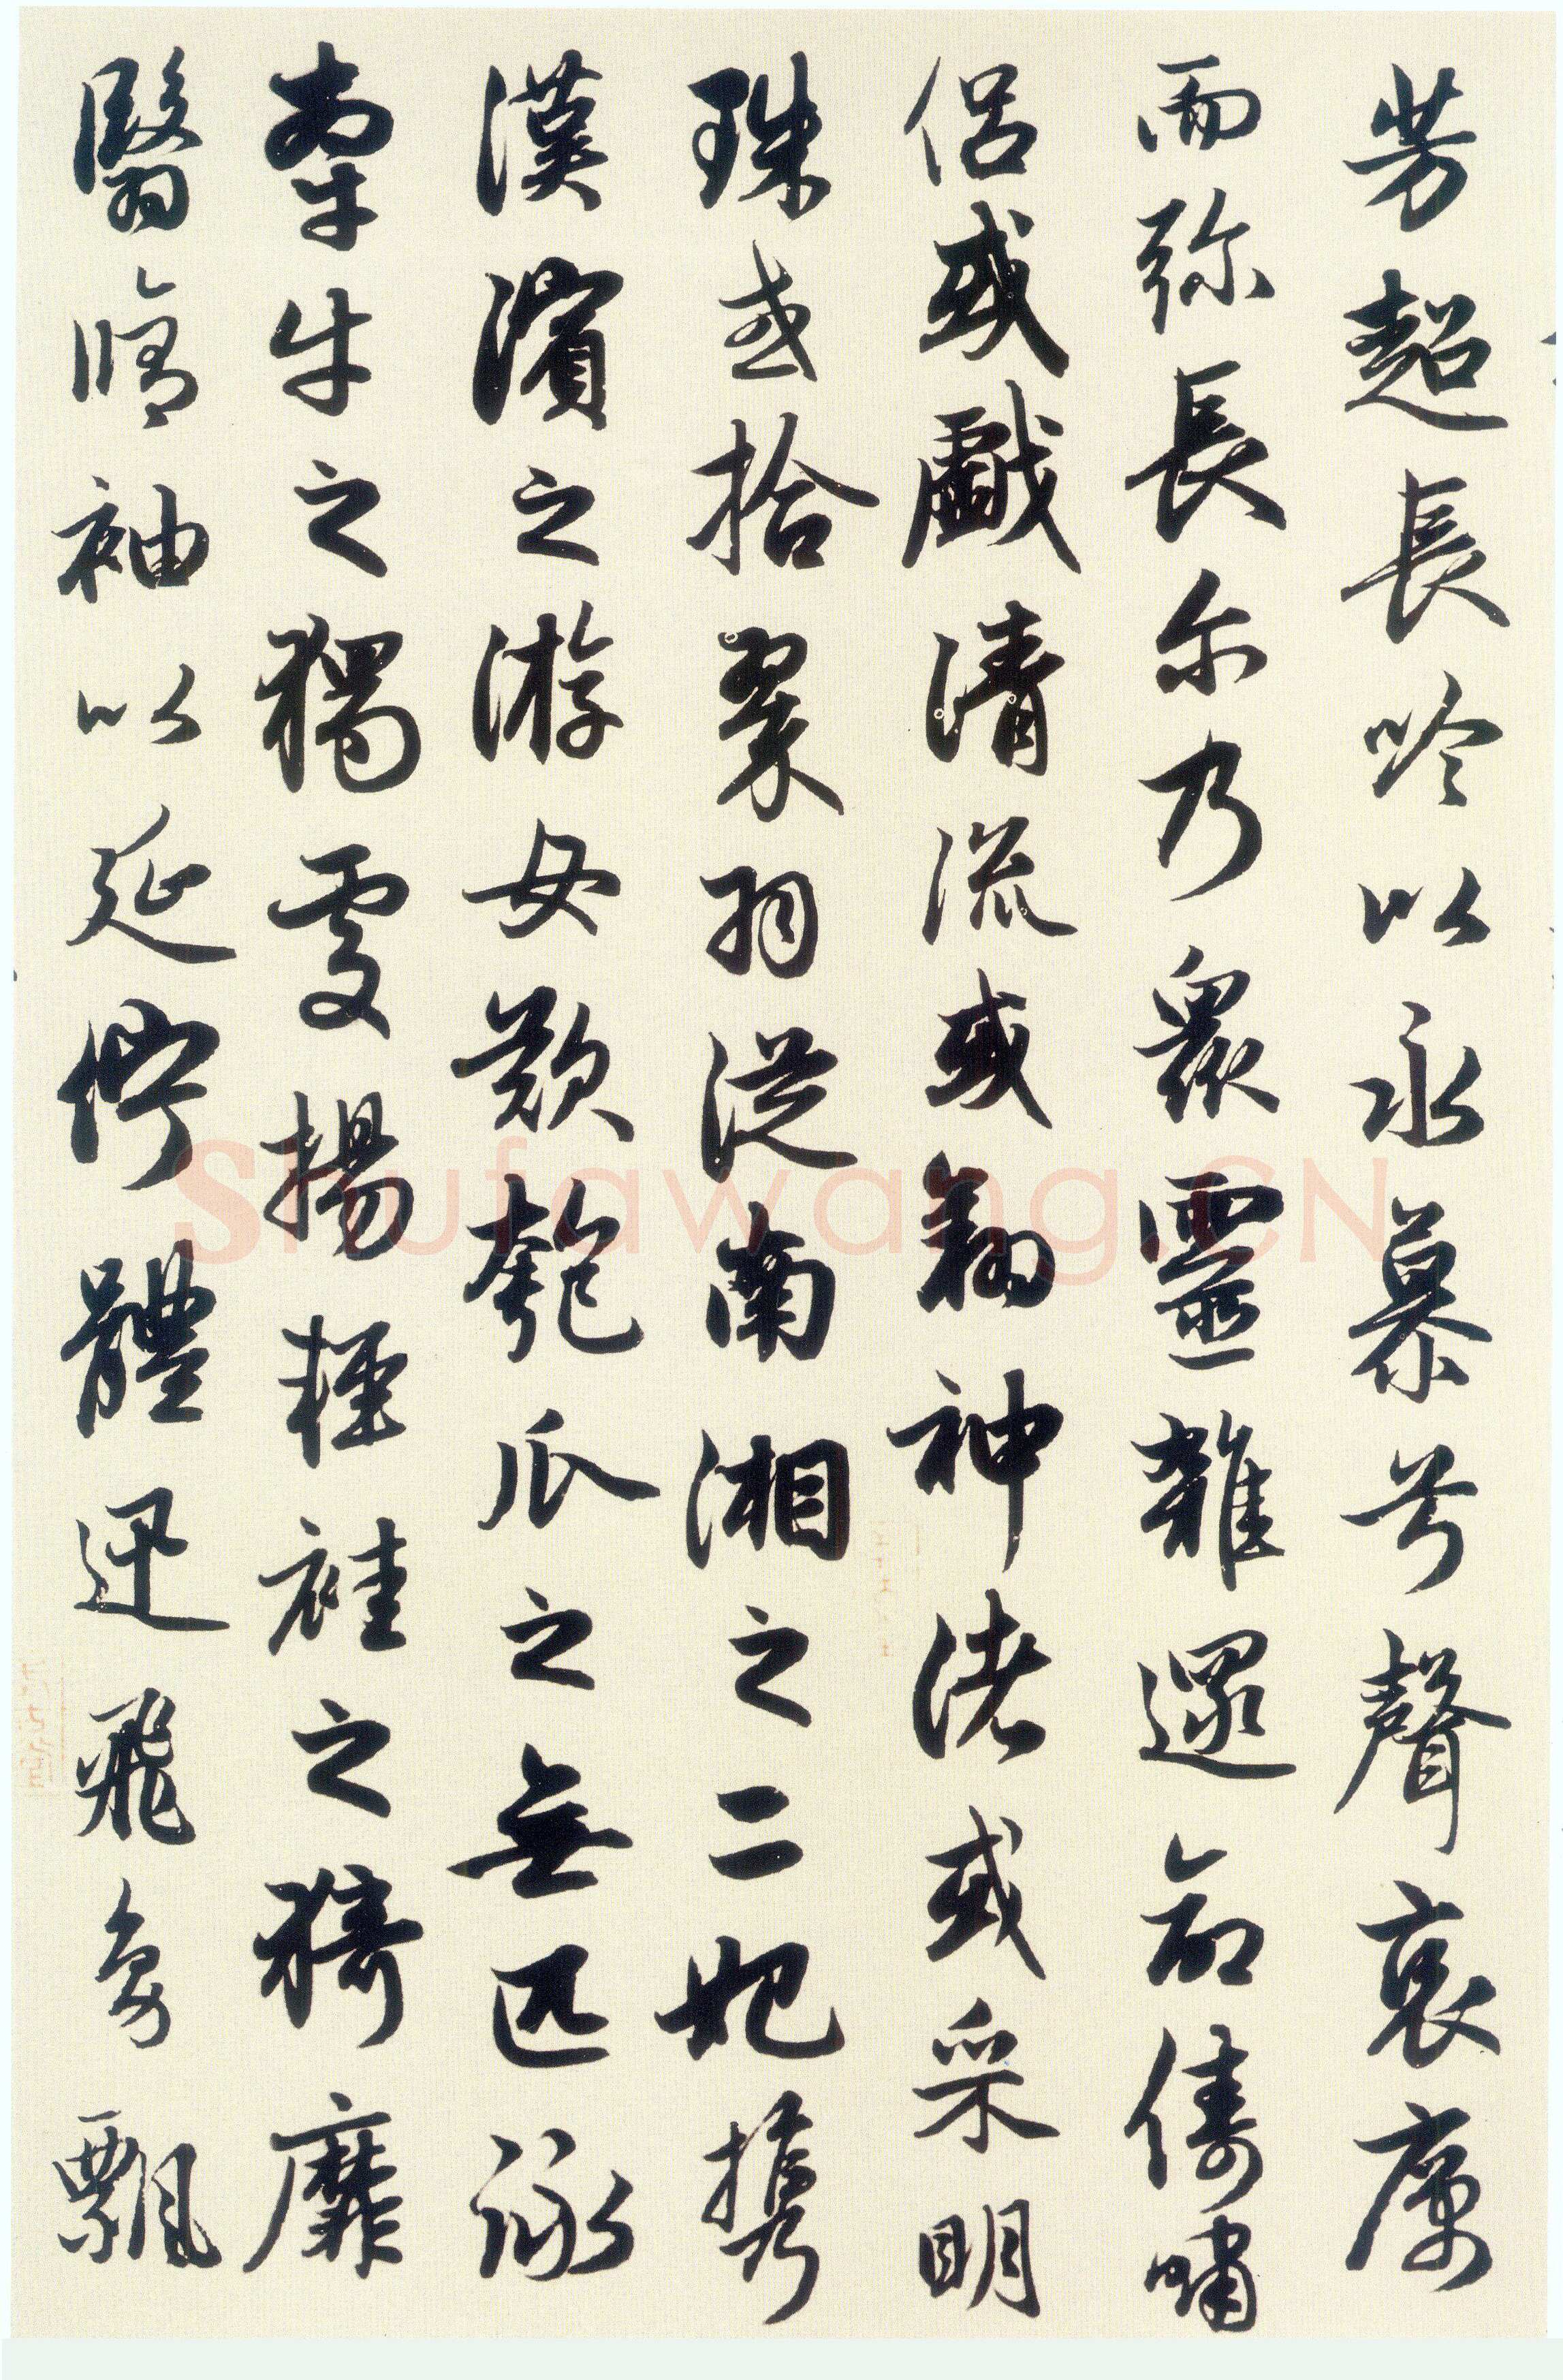 芳超長吟以永慕兮聲哀厲
而弥長尔乃眾靈雜遝命儔嘯
侶或戲清流或翔神渚或采明
珠或拾翠羽從南湘之二妃攜
漢濱之游女歎匏瓜之無匹詠
牽牛之獨處揚輕袿之猗靡
翳脩袖以延佇體迅飛鳧飄
Shufawang.CN